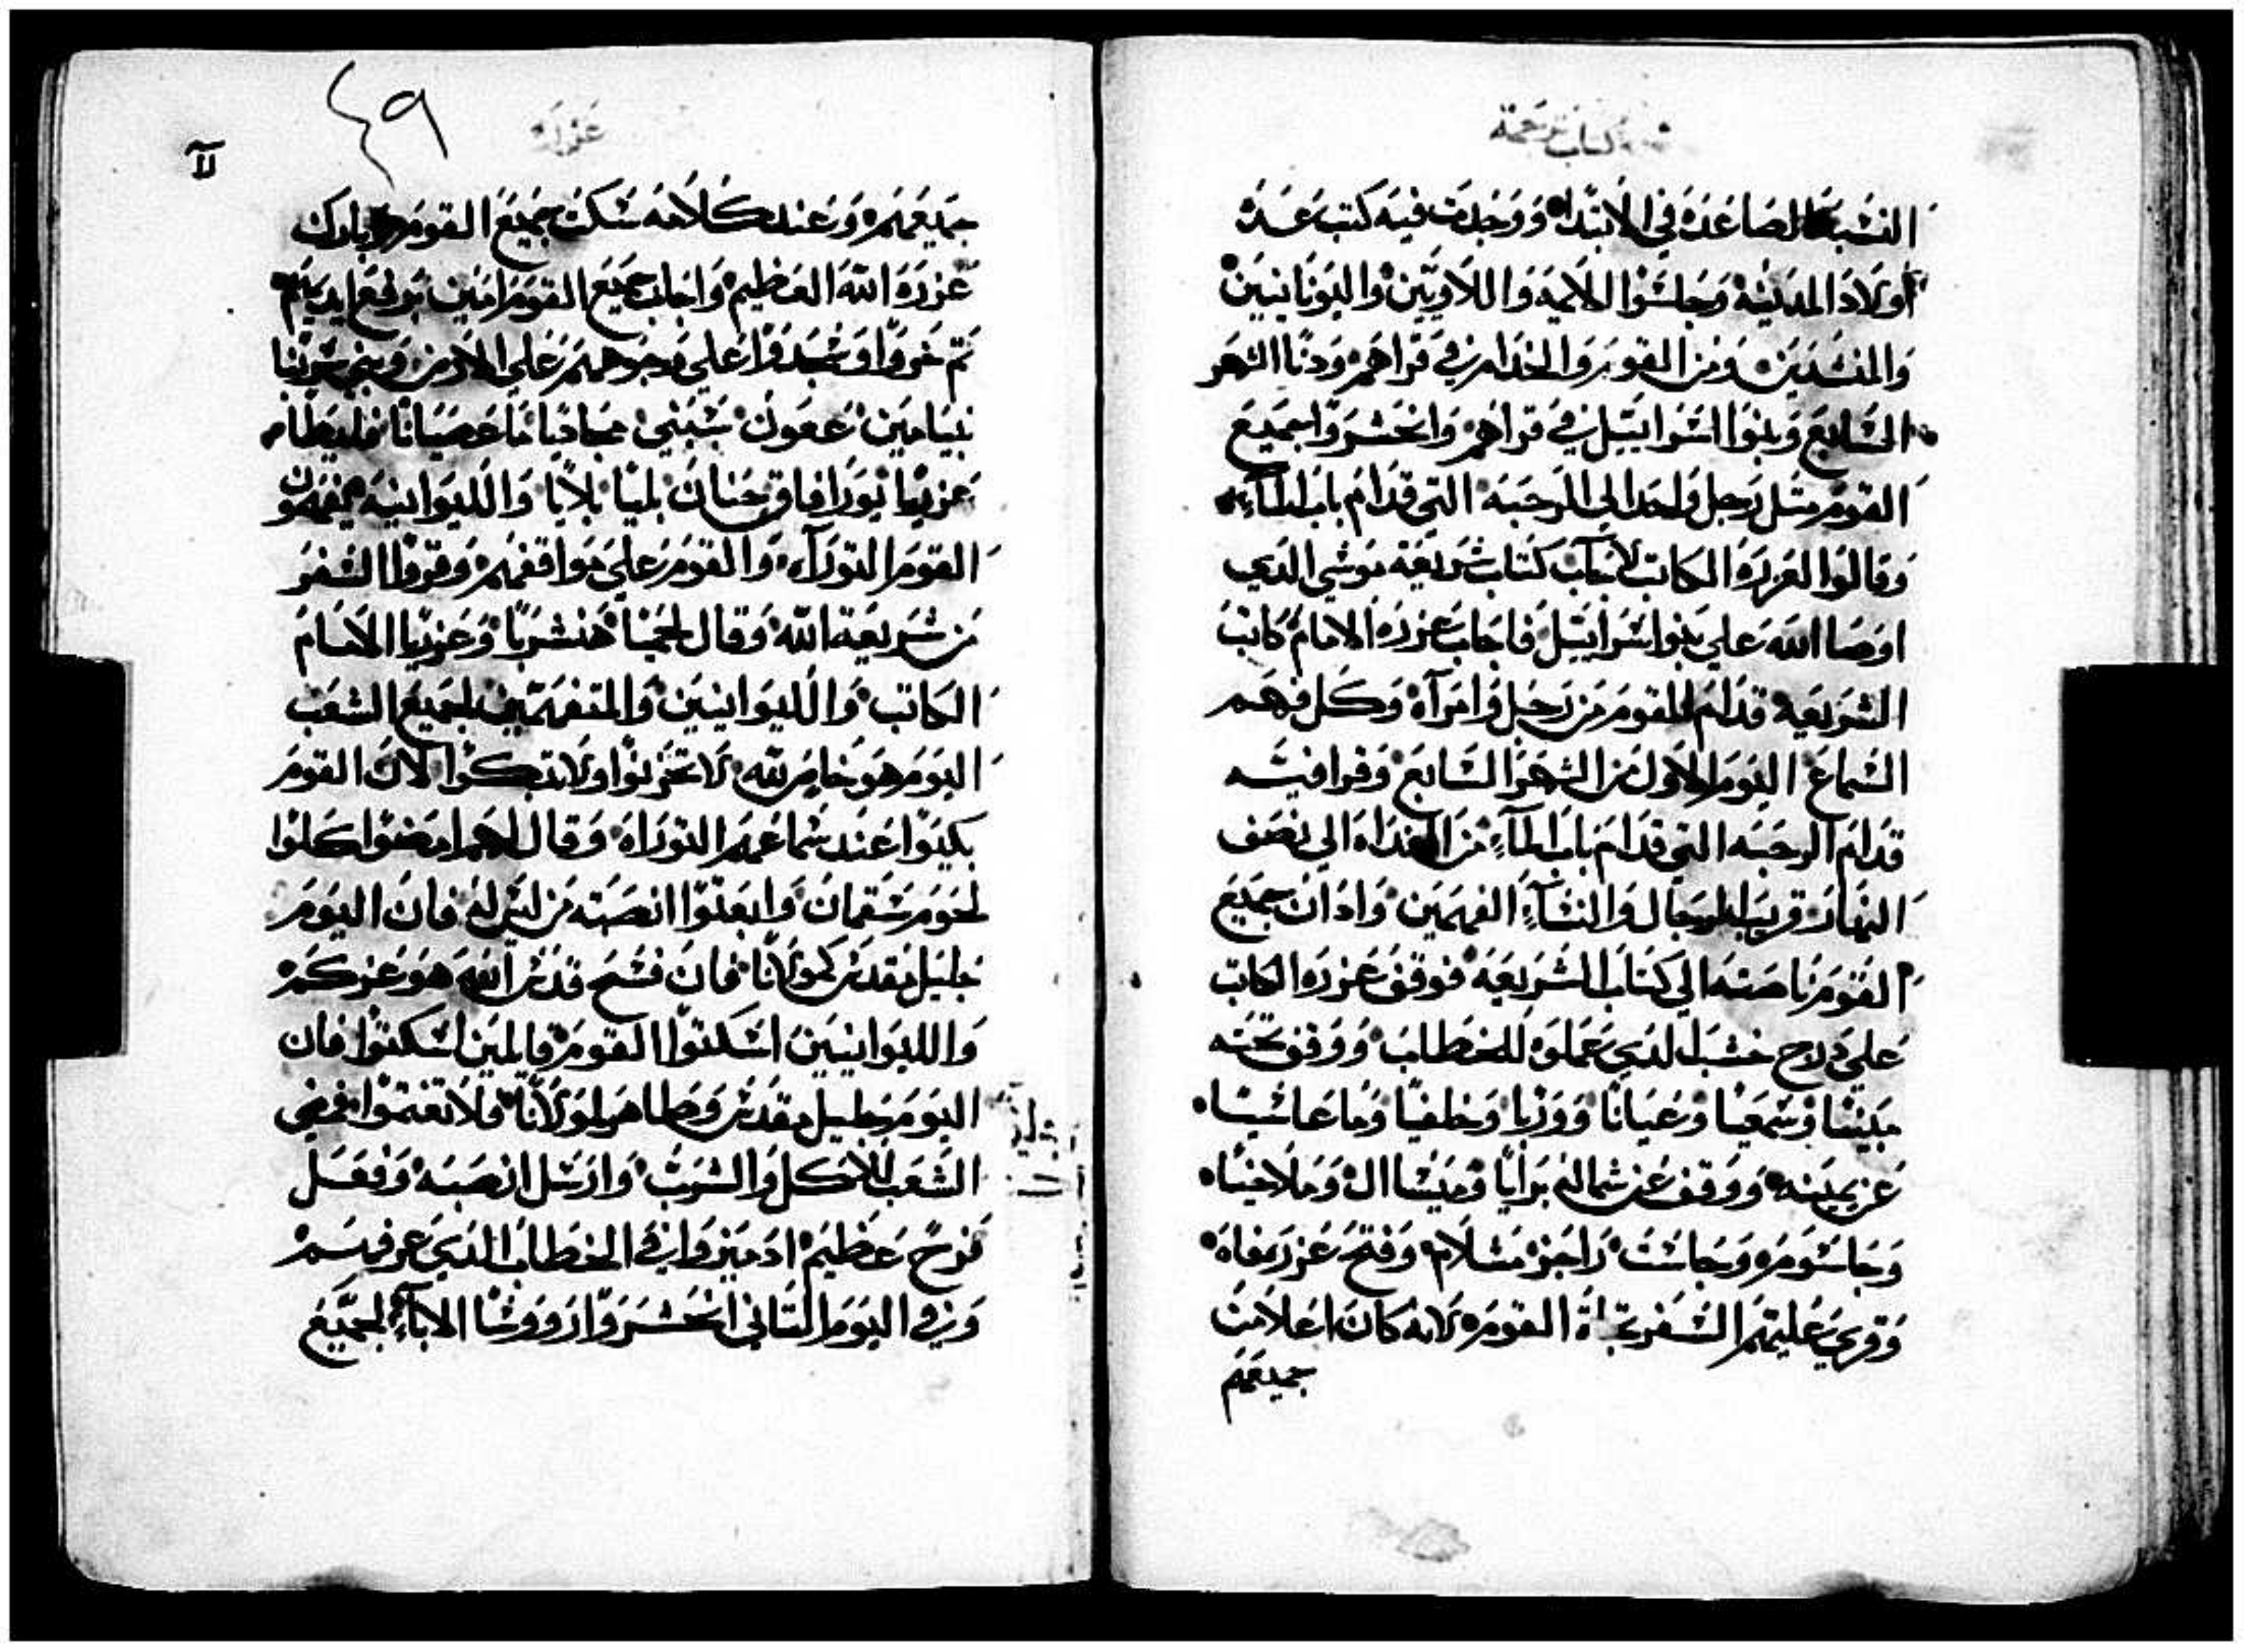 كتاب ترجمة
النسبة الصاعده في الابتداء ووجدت فيه كتب عدة
اولاد المدينة وجلسوا الايمه واللاويين والبونانيين
والمنشدين ومن القوم والخدام في قراهم ودنا الشهر
السابع وبنوا اسرائيل في قراهم وانحشروا جميع
القوم مثل رجل واحد الي الرحبه التي قدام باب الماء
وقالوا لعزره الكاتب لاجاب كتاب شريعة موسي الذي
اوصا الله علي بنوا اسرائيل فاجاب عزره الامام كاتب
الشريعه قدام القوم من رجل وامراه وكل فهم
السماع اليوم الاول من الشهر السابع وقرا فيه
قدام الرحبه التي قدام باب الماء من الغداه الي نصف
النهار قريب الرجال والنساء الفهمين واذان جميع
القوم ناصته الي كتاب الشريعه فوقف عزره الكاتب
علي درج خشب الذي عملوه للخطاب ووقف تحته
متيثيا وسمعيا وعيانا ووريا وخلفيا وماعاشيا
عن يمينه ووقف عن شماله برايا وميشاال وملاخيا
وحاشوم وحاشت راجز مشلام وفتح عزره فاه
وقري عليهم السفر تجاة القوم لانه كان اعلا من
جميعهم
عزره
٤٩
جميعهم وعند كلامه سكت جميع القوم وبارك
عزره الله العظيم واجاب جميع القوم امين برفع ايديهم
ثم خروا وسجدوا علي وجوههم علي الارض وبني شربيا
بنيامين عقون شبتي
عزريا يوزا فاق حنان بليا بلايا والليوانيه يفهمون
القوم التوراه والقوم علي مواقفهم وقروا السفر
من شريعة الله وقال لحميا هنشربا وعزريا الامام
الكاتب والليوانيين والمتفهمين لجميع الشعب
اليوم هو خاص لله لا تحزنوا ولا تبكوا لان القوم
بكيوا عند سماعهم التوراه وقال لهم امضوا كلوا
لحوم سمان وابعتوا انصبه من ليس له فان اليوم
جليل مقدس لمولانا فان فسح قدس الله هو عزكم
والليوانيين اسكتوا القوم قايلين اسكتوا فان
اليوم جليل مقدس وطاهر لمولانا فلا تغتموا فمضي
الشعب للاكل والشرب وارسل انصبه وفعل
فرح عظيم اذ ميزوا في الخطاب الذي عرفهم
وفي اليوم الثاني انحشروا رووسا الاباء لجميع